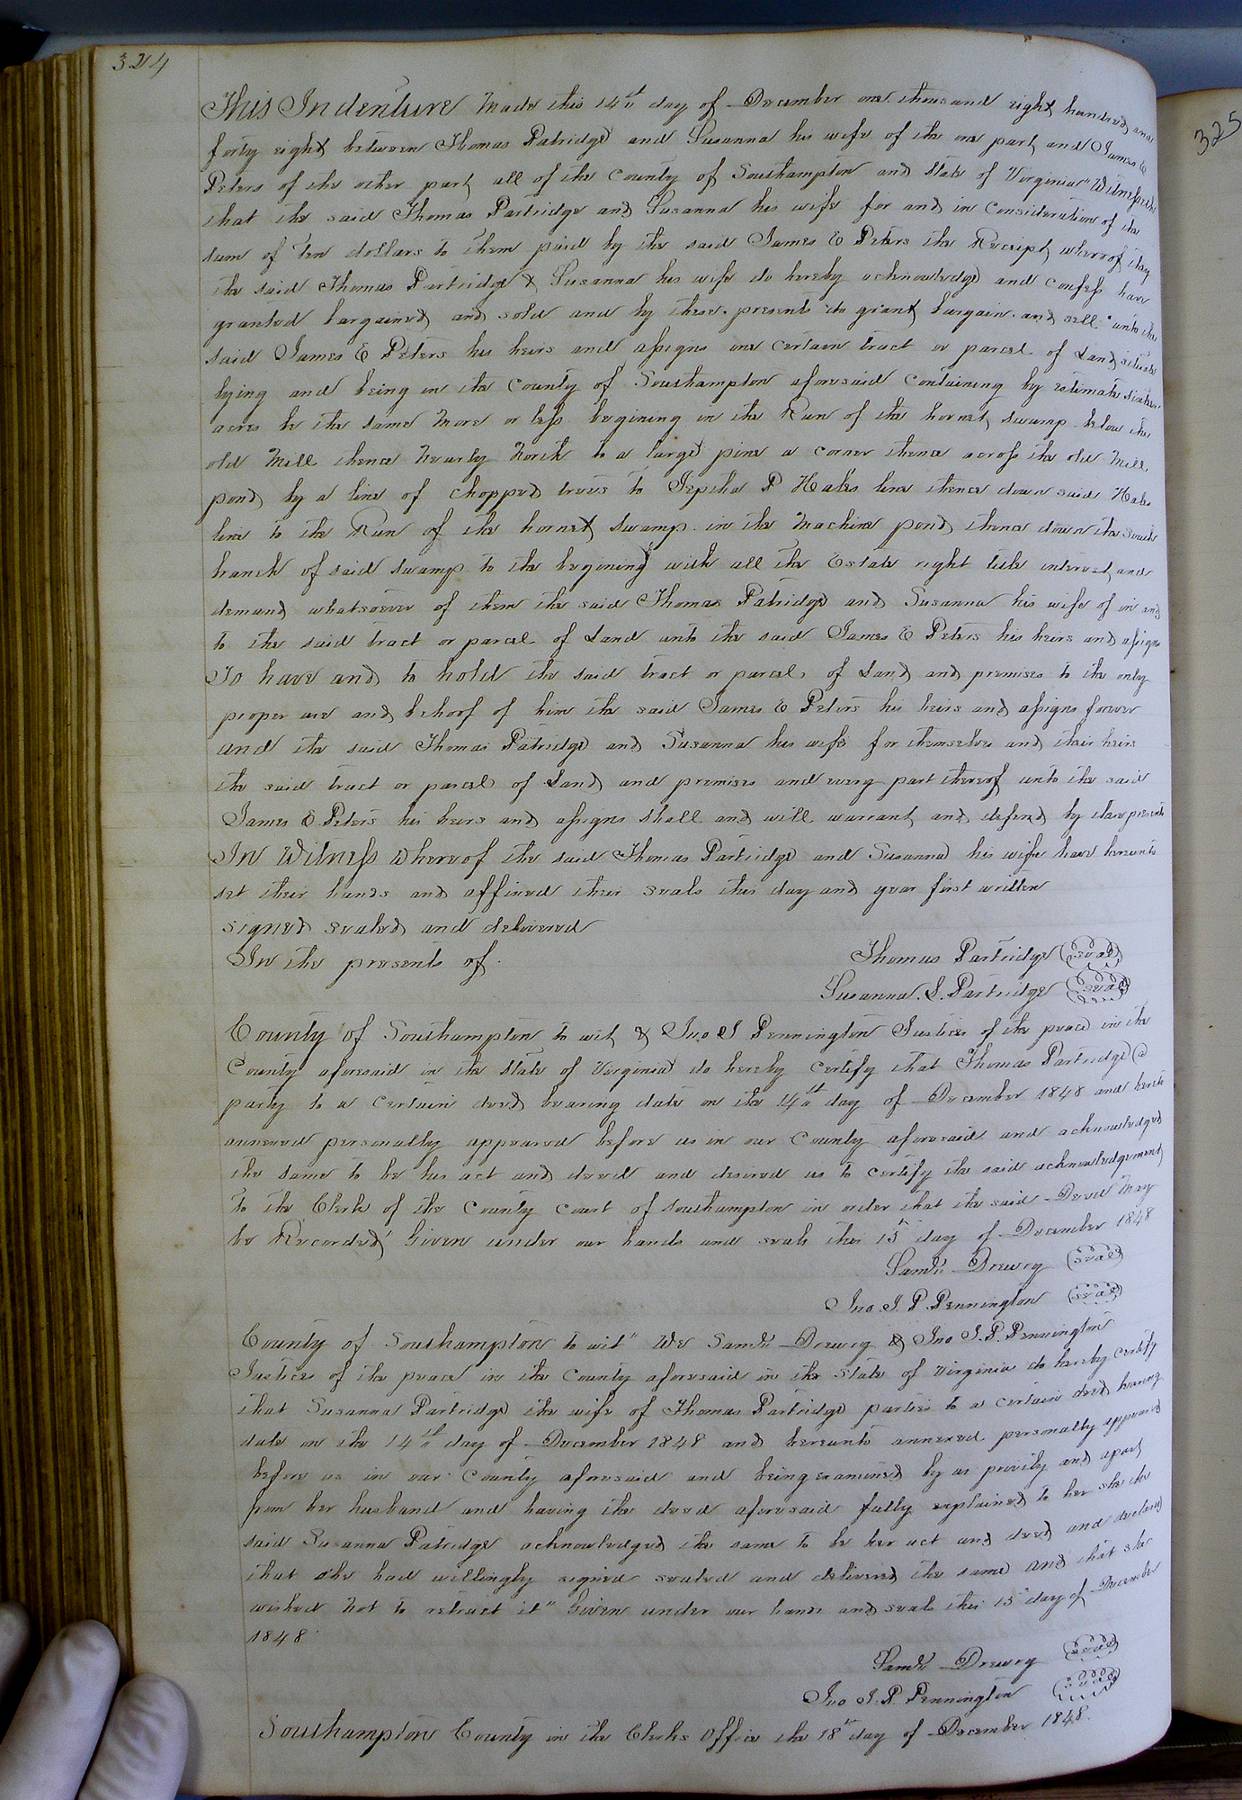 324
325
This Indenture Made this 14th day of December one thousand eight hundred and
forty eight between Thomas Patridge and Susanna his wife of the one part and James E
Peters of the other part all of the County of Southampton and State of Virginia" Witnesseth
that the said Thomas Partridge and Susanna his wife for and in Consideration of the
sum of Ten dollars to them paid by the said James E Peters the Receipt whereof they
the said Thomas Partridge & Susanna his wife do hereby acknowledge and confess have
granted bargained and sold and by these presents do grant bargain and sell" unto the
said James E Peters his heirs and assigns one certain tract or parcel of Land situate
lying and being in the County of Southampton aforesaid containing by estimate sixteen
acres be the same More or less begining in the Run of the hornet swamp below the
old Mill thence Nearly North to a large pine a corner thence across the old Mill
pond by a line of chopped trees to Jeptha P Hales line thence down said Hales
line to the Run of the hornet swamp in the Machine pond thence down the south
branch of said swamp to the begining with all the Estate right title interest and
demand whatsoever of them the said Thomas Patridge and Susanna his wife of in and
to the said tract or parcel of Land unto the said James E Peters his heirs and assigns
To have and to hold the said tract or parcel of Land and premises to the only
proper use and behoof of him the said James E Peters his heirs and assigns forever
and the said Thomas Patridge and Susanna his wife for themselves and their heirs
the said tract or parcel of Land and premises and every part thereof unto the said
James E Peters his heirs and assigns shall and will warrant and defend by these presents
In Witness Whereof the said Thomas Partridge and Susanna his wife have hereunto
set their hands and affixed their seals this day and year first written
signed sealed and delivered
In the presents of
Thomas Partridge (seal)
Susanna. S. Partridge (seal)
County of Southampton to wit & Jno J Pennington Justices of the peace in the
County aforesaid in the State of Virginia do hereby certify that Thomas Partridge a
party to a certain deed bearing date on the 14th day of December 1848 and hereto
annexed personally appeared before us in our County aforesaid and acknowledged
the same to be his act and deed and desired us to certify the said acknowledgement
to the Clerk of the County Court of Southampton in order that the said Deed May
be Recorded Given under our hands and seals this 15th day of December 1848
Saml. Drewry (seal)
Jno. J. P. Pennington (seal)
County of Southampton to wit" We Saml. Drewry & Jno J. P. Pennington
Justices of the peace in the County aforesaid in the State of Virginia do hereby certify
that Susanna Partridge the wife of Thomas Partridge parties to a certain deed bearing
date on the 14th day of December 1848 and hereunto annexed personally appeared
before us in our County aforesaid and being examined by us privily and apart
from her husband and having the deed aforesaid fully explained to her she the
said Susanna Patridge acknowledged the same to be her act and deed and declared
that she had willingly signed sealed and delivered the same and that she
wished Not to retract it" Given under our hands and seals this 15 day of December
1848
Saml. Drewry (seal)
Jno J. P. Pennington (seal)
Southampton County in the Clerks Office the 18th day of December 1848.